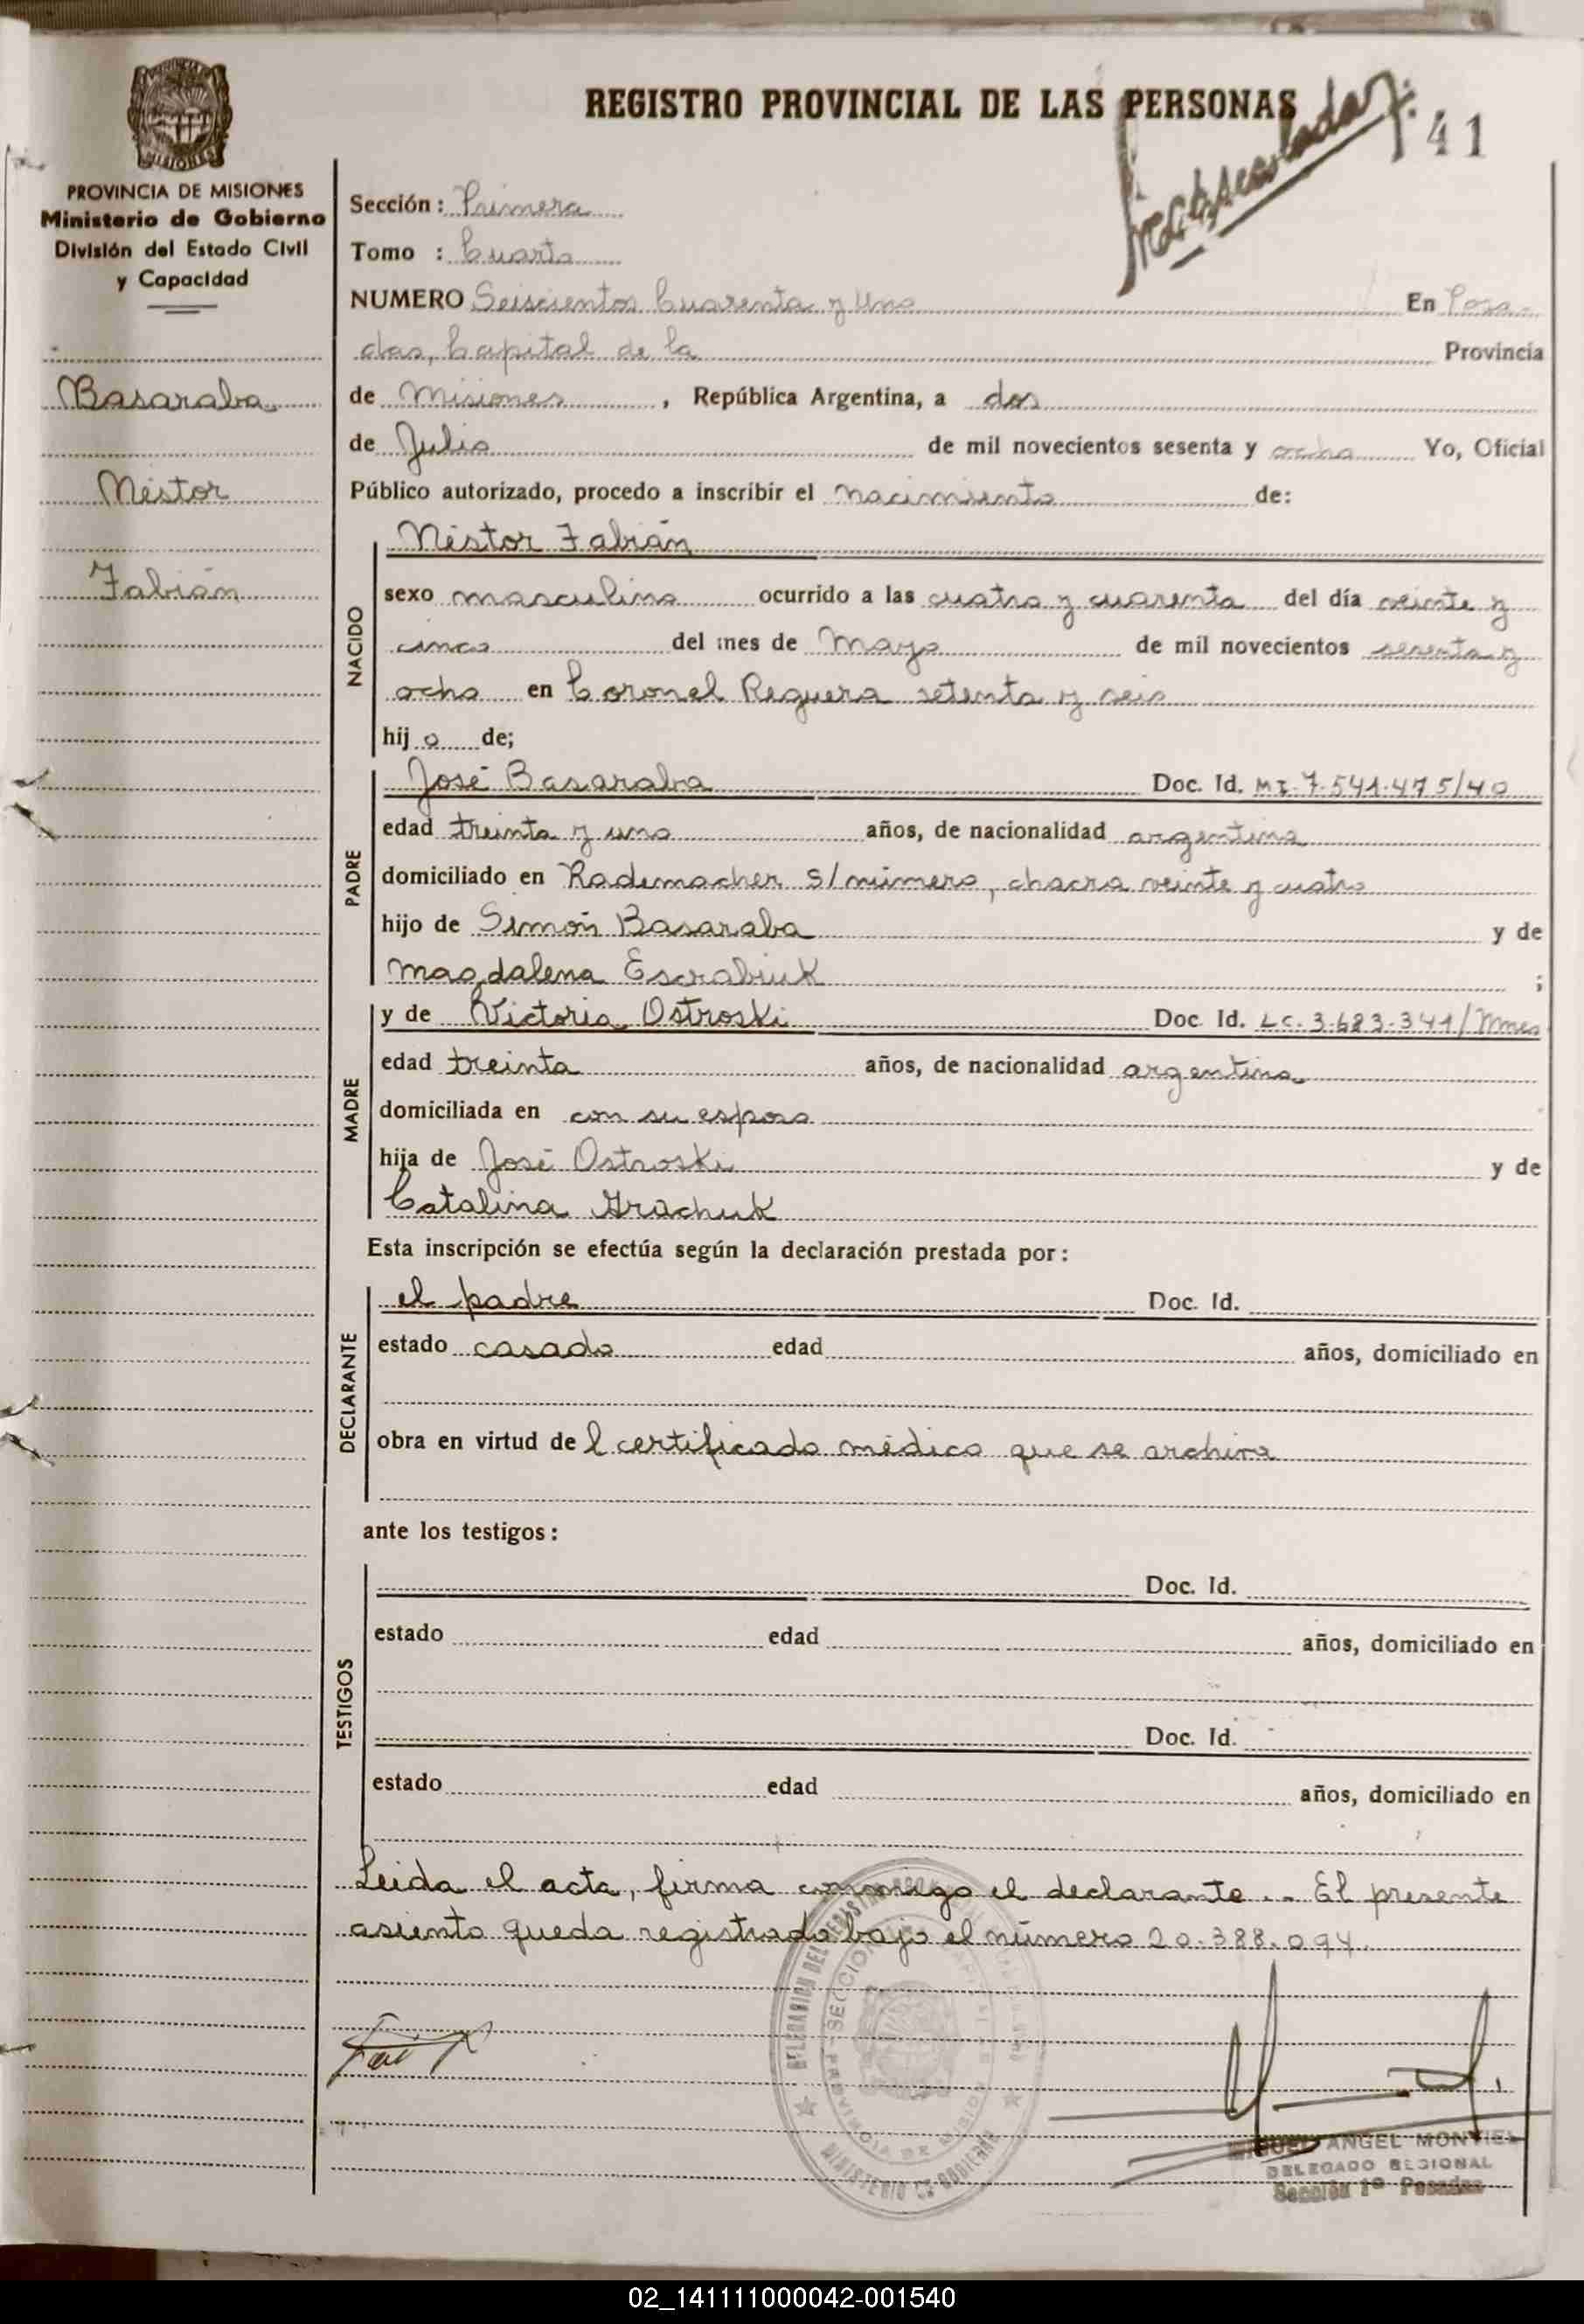 REGISTRO PROVINCIAL DE LAS PERSONAS
41
MISIONES
PROVINCIA DE MISIONES
Ministerio de Gobierno
División del Estado Civil
y Capacidad
Basaraba
Néstor
Fabián
Sección: Primera
Tomo : Cuarto
NUMERO Seiscientos Cuarenta y Uno En Posa-
das, Capital de la Provincia
de Misiones, República Argentina, a dos
de Julio de mil novecientos sesenta y ocho Yo, Oficial
Público autorizado, procedo a inscribir el nacimiento de:
NACIDO
Néstor Fabián
sexo masculino ocurrido a las cuatro y cuarenta del día veinte y
cinco del mes de Mayo de mil novecientos sesenta y
ocho en Coronel Reguera setenta y seis
hijo de;
PADRE
José Basaraba Doc. Id. MI. 7.541.475/40
edad treinta y uno años, de nacionalidad argentina
domiciliado en Rademacher s/número, chacra veinte y cuatro
hijo de Simón Basaraba y de
Magdalena Escrabiuk ;
MADRE
y de Victoria Ostroski Doc. Id. LC. 3.683.341/Mnes
edad treinta años, de nacionalidad argentina
domiciliada en con su esposo
hija de José Ostroski y de
Catalina Hrachuk
Esta inscripción se efectúa según la declaración prestada por:
DECLARANTE
el padre Doc. Id.
estado casado edad años, domiciliado en
obra en virtud del certificado médico que se archiva
ante los testigos:
TESTIGOS
Doc. Id.
estado edad años, domiciliado en
Doc. Id.
estado edad años, domiciliado en
Leida el acta, firma conmigo el declarante.. El presente
asiento queda registrado bajo el número 20.388.094.
DELEGACION DEL REGISTRO
SECCION
PROVINCIA DE MISIONES
MINISTERIO DE GOBIERNO
MIGUEL ANGEL MONTIEL
DELEGADO REGIONAL
Sección 1º Posadas
02_141111000042-001540